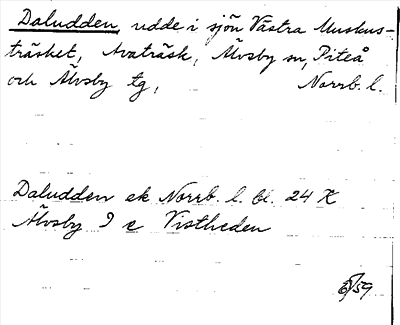 Daludden, udde i sjön Västra Muskus-
träsket, Avaträsk, Älvsby sn, Piteå
och Älvsby tg, Norrb. l.
Daludden ek Norrb. l. bl. 24 K
Älvsby I c Vistheden
/59